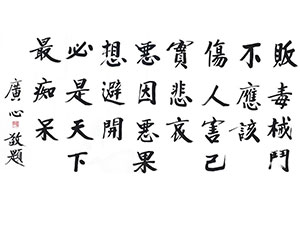 販毒械鬥
不應該
傷人害己
實悲哀
惡因惡果
想避開
必是天下
最痴呆
廣心敬題